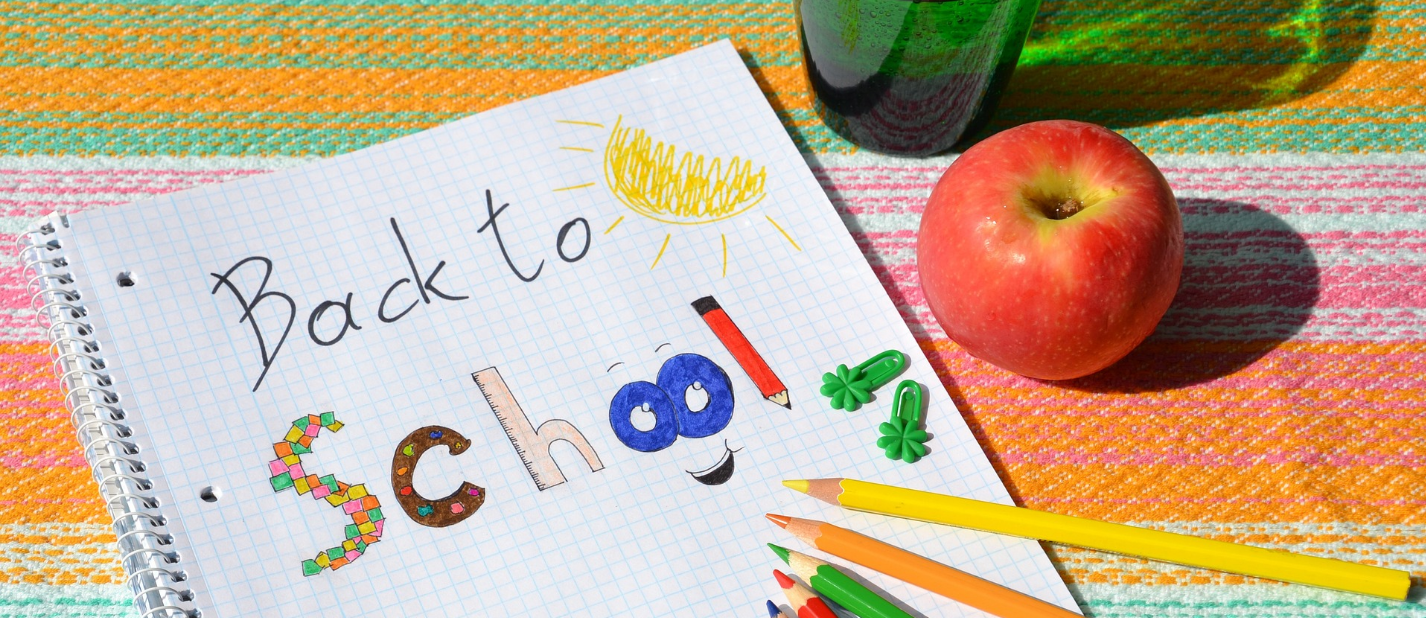 Back to
School